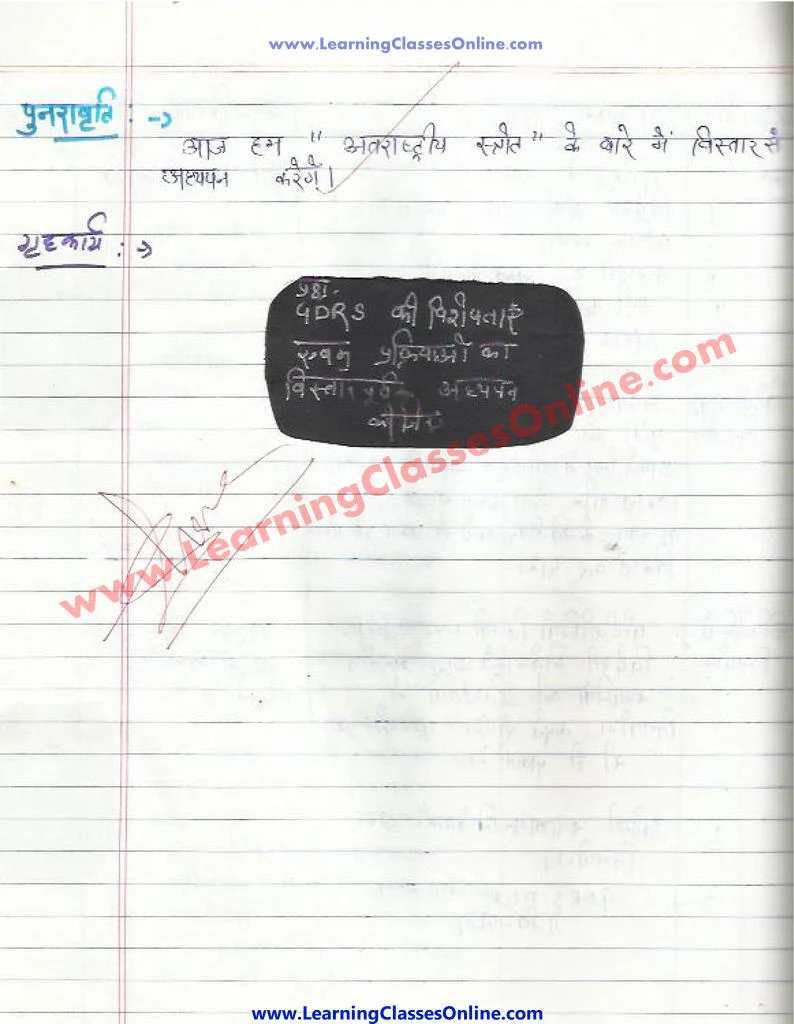 www.LearningClassesOnline.com
पुनरावृति :->
आज हम " अतंराष्ट्रीय स्त्रोत " के बारे में विस्तार से
अध्ययन करेगें।
गृहकार्य :->
प्रश्न.
GDRS की विशेषताएँ
एवम् प्रक्रियाओं का
विस्तारपूर्वक अध्ययन
कीजिए
www.LearningClassesOnline.com
www.LearningClassesOnline.com